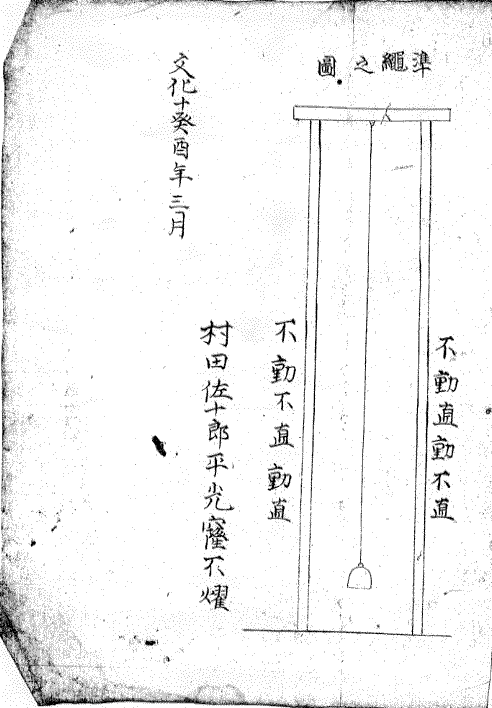 準繩之圖
不動直動不直
不動不直動直
村田佐十郎平光窿不燿
文化十癸酉年三月